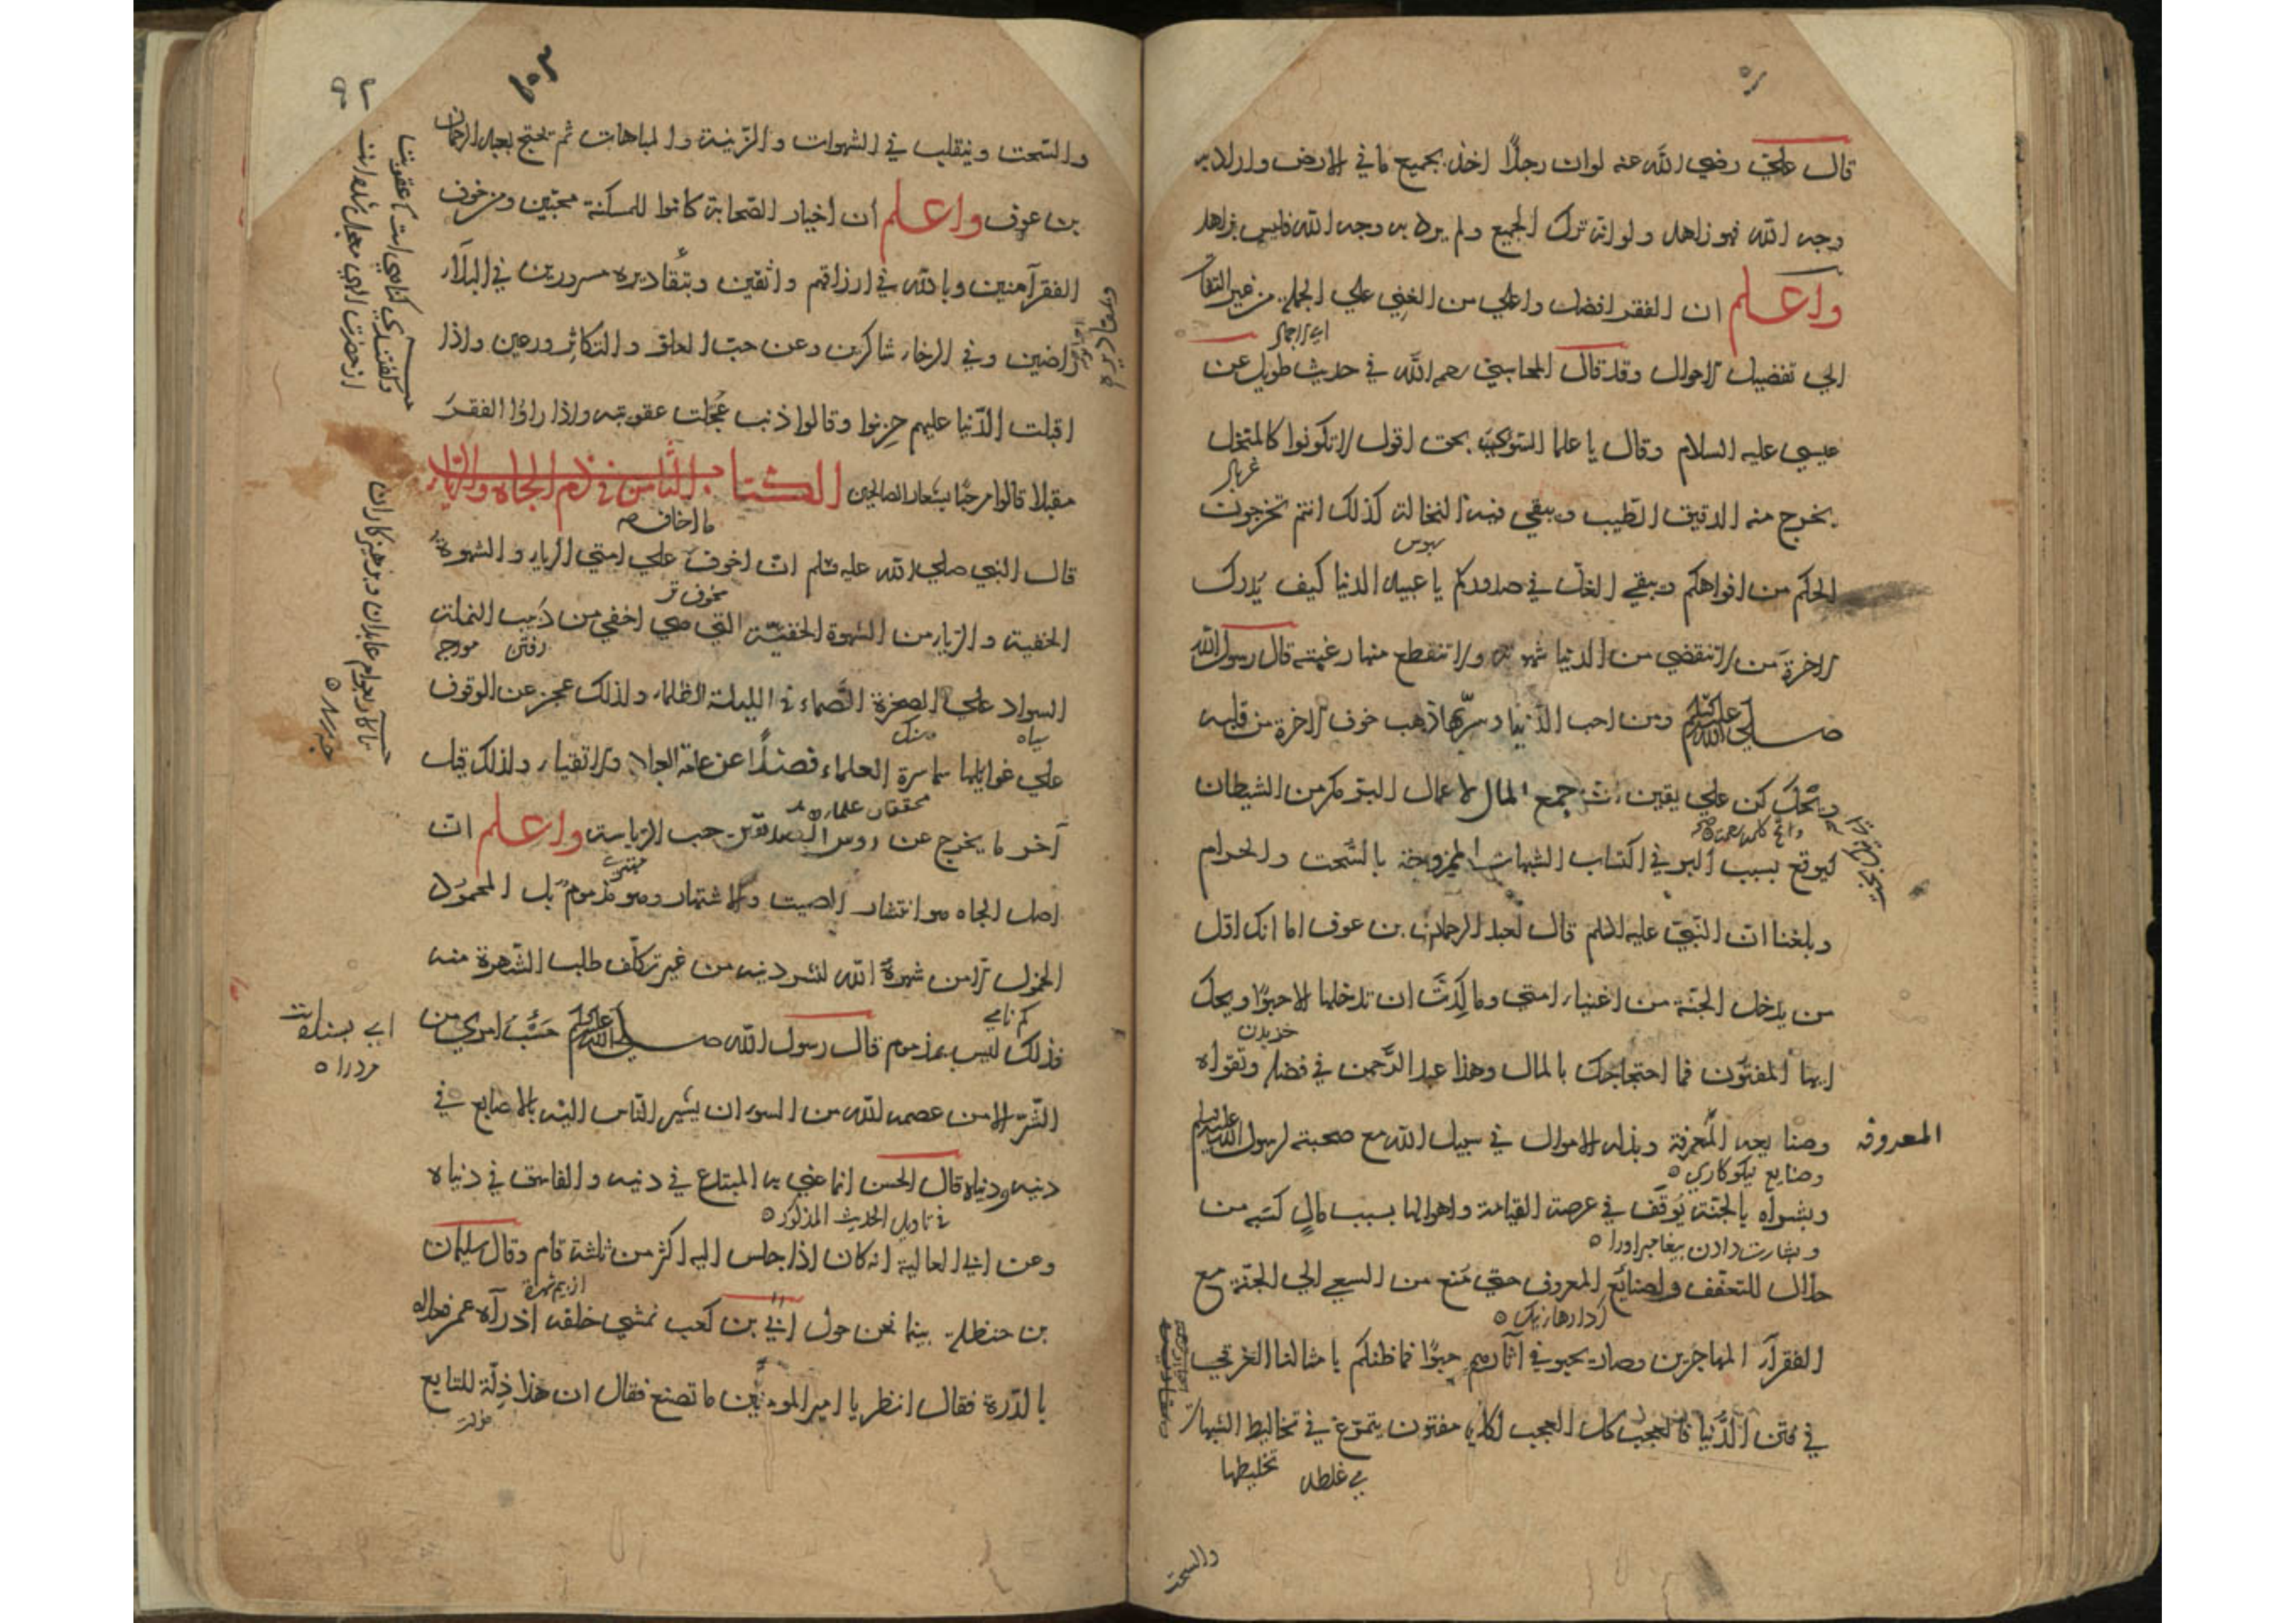 قال علي رضي الله عنه لو ان رجلاً اخذ بجميع ما في الارض واراد به
وجه الله فهو زاهد ولو انه ترك الجميع ولم يرد به وجه الله فليس بزاهد
واعلم ان الفقر افضل واعلي من الغني علي الجملة من غير التفات
الي تفضيل الاحوال وقد قال المحاسبي رحمه الله في حديث طويل عن
عيسي عليه السلام وقال يا علما السوء بحق اقول لا تكونوا كالمنخل
غربال
يخرج منه الدقيق الطيب ويبقي فيه النخالة كذلك انتم تخرجون
سبوس
الحكم من افواهكم ويبقي الغل في صدوركم يا عبيد الدنيا كيف يدرك
الاخرة من لا تنقضي من الدنيا شهوته ولا تنقطع منها رغبته قال رسول الله
صلي الله عليه وسلم ومن احب الدنيا وسر بها ذهب خوف الاخرة من قلبه
ويحك كن علي يقين ان جمع المال لاعمال البر مكر من الشيطان
ليوقع بسبب البر في اكتساب الشبهات الممزوجة بالسحت والحرام
وبلغنا ان النبي عليه السلام قال لعبد الرحمان بن عوف اما انك اول
من يدخل الجنة من اغنياء امتي وما كدت ان تدخلها الا حبوًا ويحك
خزيدن
ايها المفتون فما احتجاجك بالمال وهذا عبد الرحمن في فضله وتقواه
وصنايعه المعرفة وبذله الاموال في سبيل الله مع صحبته لرسول الله
المعروف
وصنايع نيكوكاري
وبشراه بالجنة يوقف في عرصة القيامة واهوالها بسبب مال كسبه من
وبشارت دادن پيغامبر اورا
حلال للتعفف ولصنائع المعروف حتي منع من السعي الي الجنة مع
كردارها نيك
الفقرآء المهاجرين وصار يحبو في آثارهم حبوًا فما ظنكم بامثالنا الغرقي
في فتن الدنيا فالعجب كل العجب لك يا مفتون يتمرغ في تخاليط الشبهات
مي غلطد تخليطها
والسحت
والسحت ويتقلب في الشهوات والزينة والمباهات ثم يحتج بعبد الرحمان
بن عوف واعلم ان اخيار الصحابة كانوا للمسكنة محبين ومن خوف
الفقر آمنين وبالله في ارزاقهم واثقين وبتقاديره مسرورين في البلآء
راضين وفي الرخاء شاكرين وعن حب العلو والتكاثر ورعين واذا
اقبلت الدنيا عليهم حزنوا وقالوا ذنب عجلت عقوبته واذا راوا الفقر
مقبلا قالوا مرحبًا بشعار الصالحين الكتاب الثامن في ذم الجاه والرياء
ما اخاف
قال النبي صلي الله عليه وسلم ان اخوف علي امتي الرياء والشهوة
مخوف تر
الخفية والرياء من الشهوة الخفية التي هي اخفي من دبيب النملة
رفتن مورچه
السواد علي الصخرة الصماء في الليلة الظلماء ولذلك عجز عن الوقوف
سياه سنك
علي غوايلها سماسرة العلماء فضلًا عن عامة العباد والاتقياء ولذلك قيل
محققان علما
آخر ما يخرج عن روس الصديقين حب الرياسة واعلم ان
اصل الجاه هو انتشار الصيت والاشتهار وهو مذموم بل المحمود
الخمول الا من شهره الله لنشر دينه من غير تكلف طلب الشهرة منه
كم نامي
فذلك ليس بمذموم قال رسول الله صلي الله عليه وسلم حسب امرئ من
الشر الا من عصمه الله من السوء ان يشير الناس اليه بالاصابع في
دينه ودنياه قال الحسن انما عني به المبتدع في دينه والفاسق في دنياه
في تاويل الحديث المذكور
وعن ابي العالية انه كان اذا جلس اليه اكثر من ثلثة قام وقال سليمان
از بيم شهرة
بن حنظلة بينا نحن حول ابي بن كعب نمشي خلفه اذ رآه عمر فعلاه
بالدرة فقال انظر يا امير المومنين ما تصنع فقال ان هذا ذلة للتابع
از حضرت الهي معجل شده است
تا كار بجوام عابدان وپرهيزكاران
چه رسد
مرد را